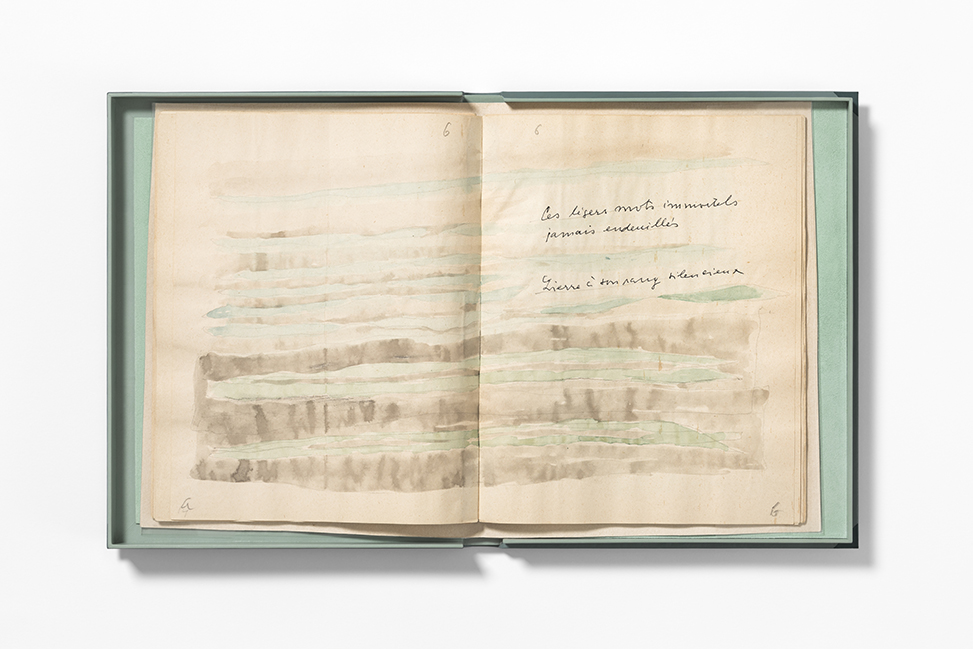 6
6
Ces lisers mots immortels
jamais endeuillés
Lierre à son rang silencieux